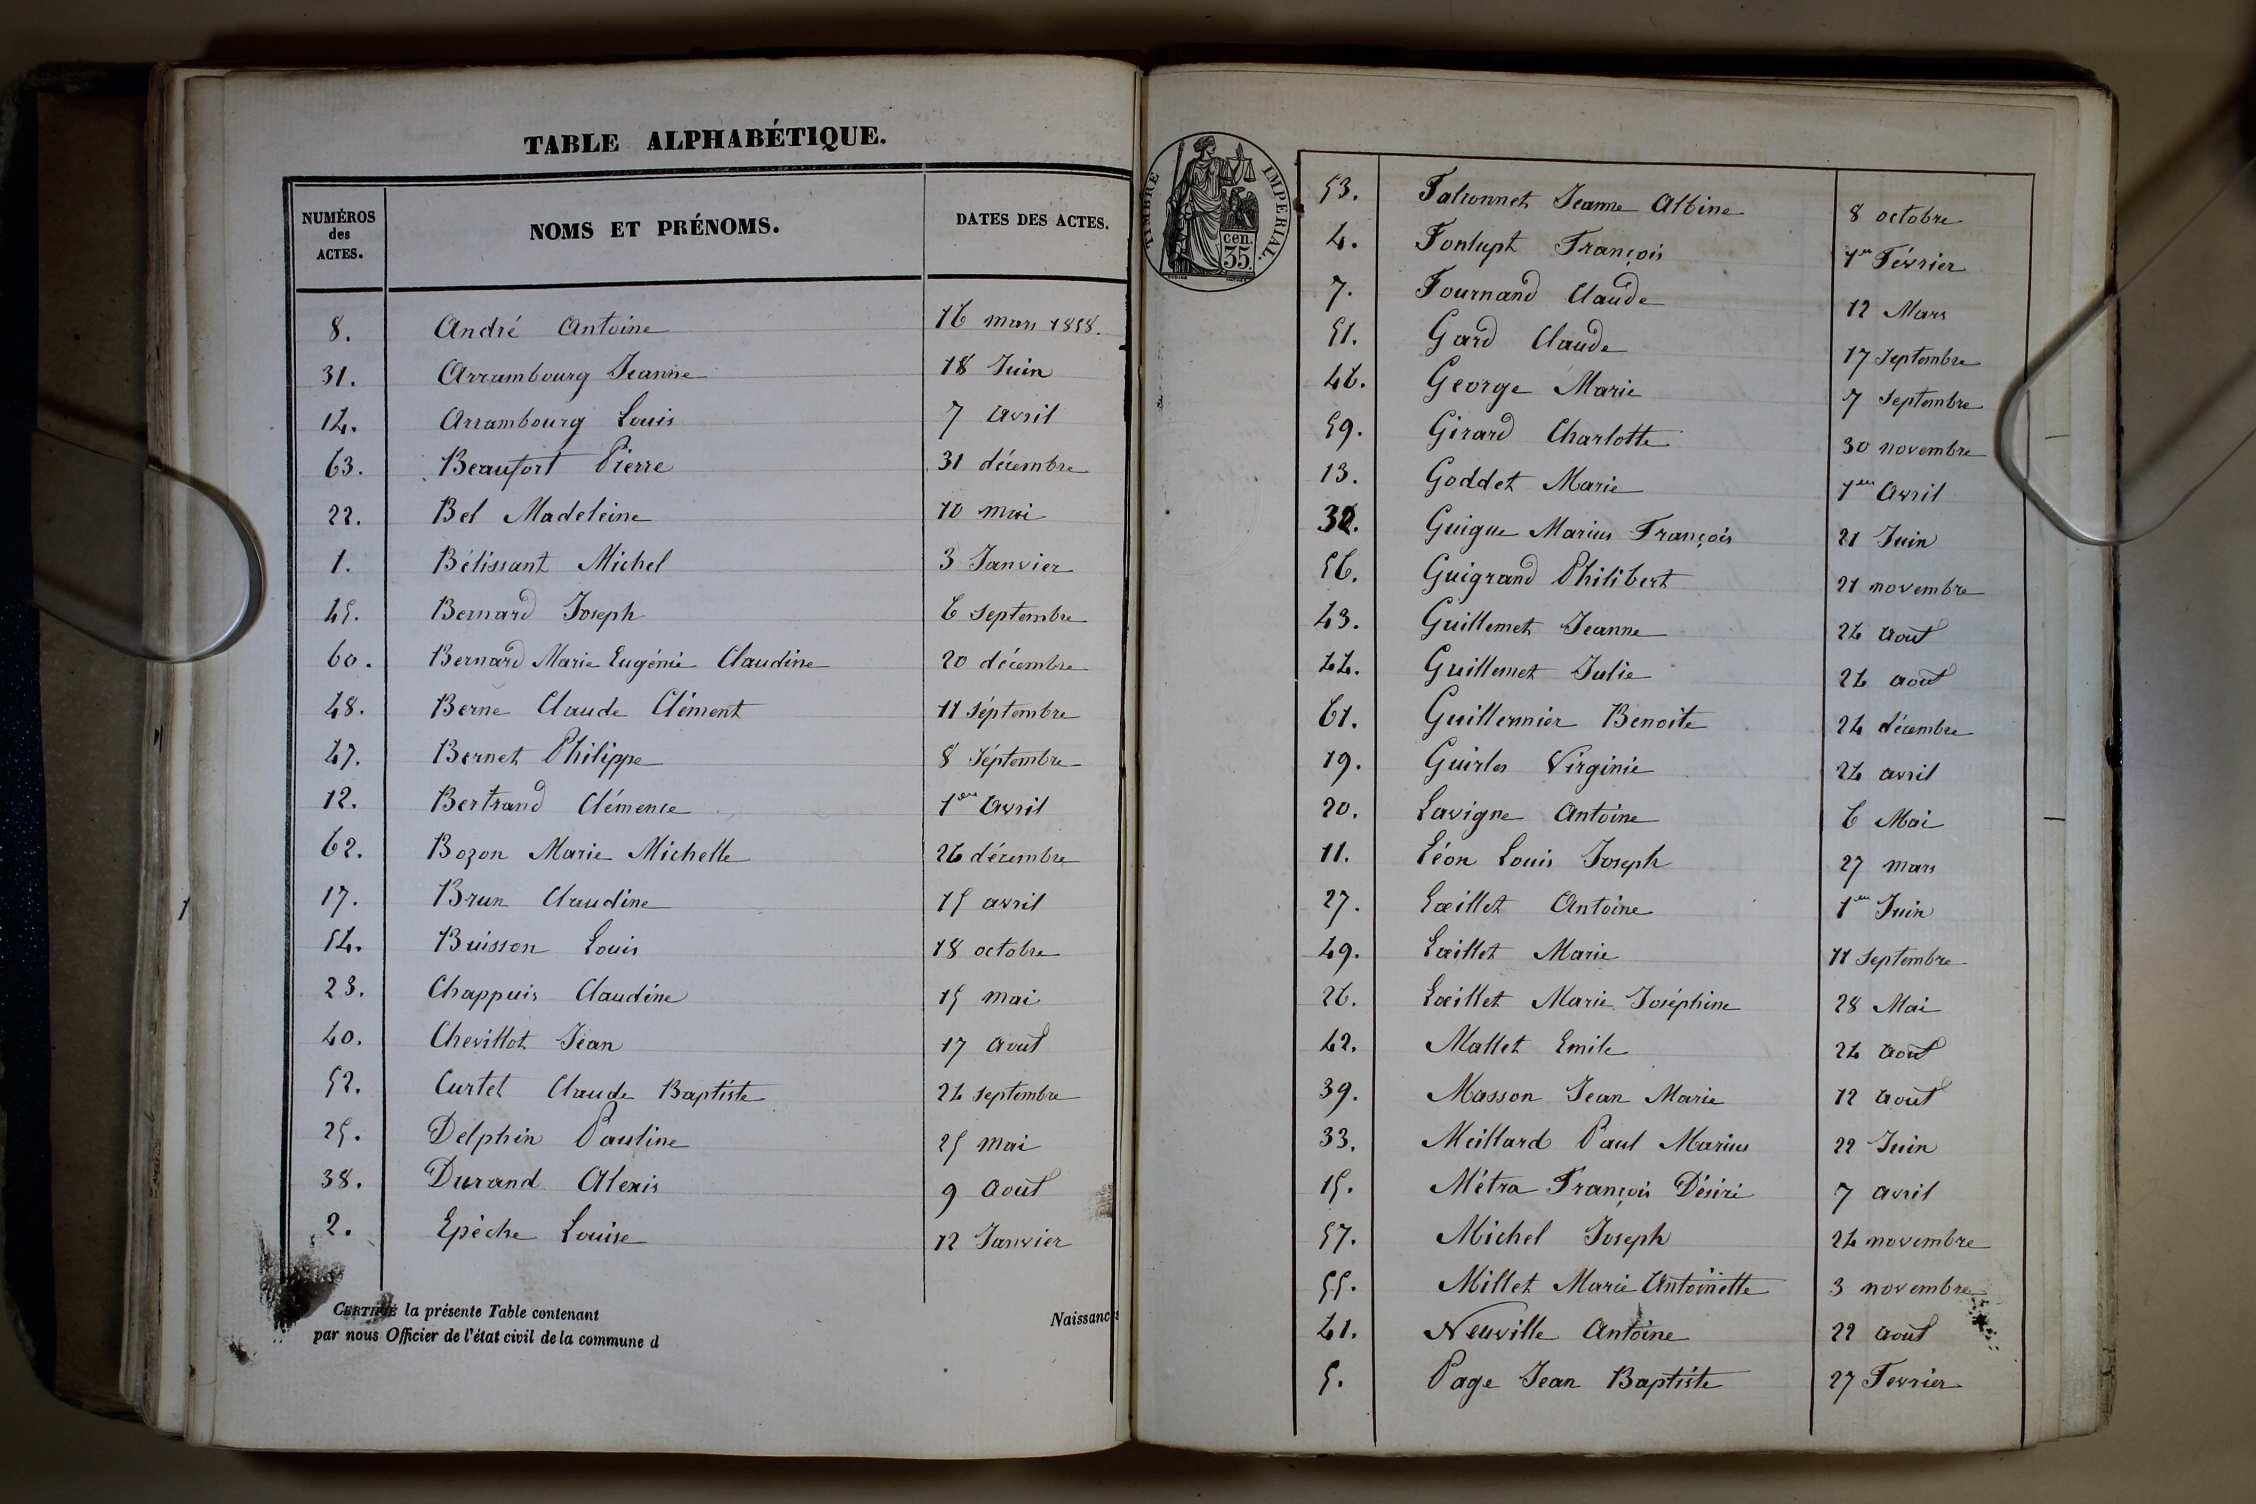 TABLE ALPHABÉTIQUE.
NUMÉROS des ACTES. NOMS ET PRÉNOMS. DATES DES ACTES.
8. André Antoine 16 mars 1858.
31. Arrambourg Jeanne 18 Juin
14. Arrambourg Louis 7 avril
63. Beaufort Pierre 31 décembre
22. Bel Madeleine 10 mai
1. Bélissant Michel 3 Janvier
45. Bernard Joseph 6 septembre
60. Bernard Marie Eugénie Claudine 20 décembre
48. Berne Claude Clément 11 séptembre
47. Bernet Philippe 8 séptembre
12. Bertrand Clémence 1er Avril
62. Bozon Marie Michelle 26 décembre
17. Brun Claudine 15 avril
54. Buisson Louis 18 octobre
23. Chappuis Claudine 15 mai
40. Chevillot Jean 17 Août
52. Curtet Claude Baptiste 24 septembre
25. Delphin Pauline 25 mai
38. Durand Alexis 9 Août
2. Epèche Louise 12 Janvier
CERTIFIÉ la présente Table contenant Naissances
par nous Officier de l'état civil de la commune d
TIMBRE IMPERIAL.
35 cen.
53. Jeanne Albine 8 octobre
4. Fonlupt François 1er Février
7. Fournand Claude 12 Mars
51. Gard Claude 17 septembre
46. George Marie 7 septembre
59. Girard Charlotte 30 novembre
13. Goddet Marie 1er Avril
32. Guigue Marius François 21 Juin
56. Guigrand Philibert 21 novembre
43. Guillemet Jeanne 24 août
44. Guillemet Julie 24 août
61. Guillermier Benoite 24 décembre
19. Virginie 24 avril
20. Lavigne Antoine 6 Mai
11. Léon Louis Joseph 27 mars
27. Lœillet Antoine 1er Juin
49. Lœillet Marie 11 septembre
26. Lœillet Marie Joséphine 28 Mai
42. Mallet Emile 24 août
39. Masson Jean Marie 12 août
33. Meillard Paul Marius 22 Juin
15. Métra François Désiré 7 avril
57. Michel Joseph 24 novembre
55. Millet Marie Antoinette 3 novembre
41. Neuville Antoine 22 août
5. Page Jean Baptiste 27 Fevrier